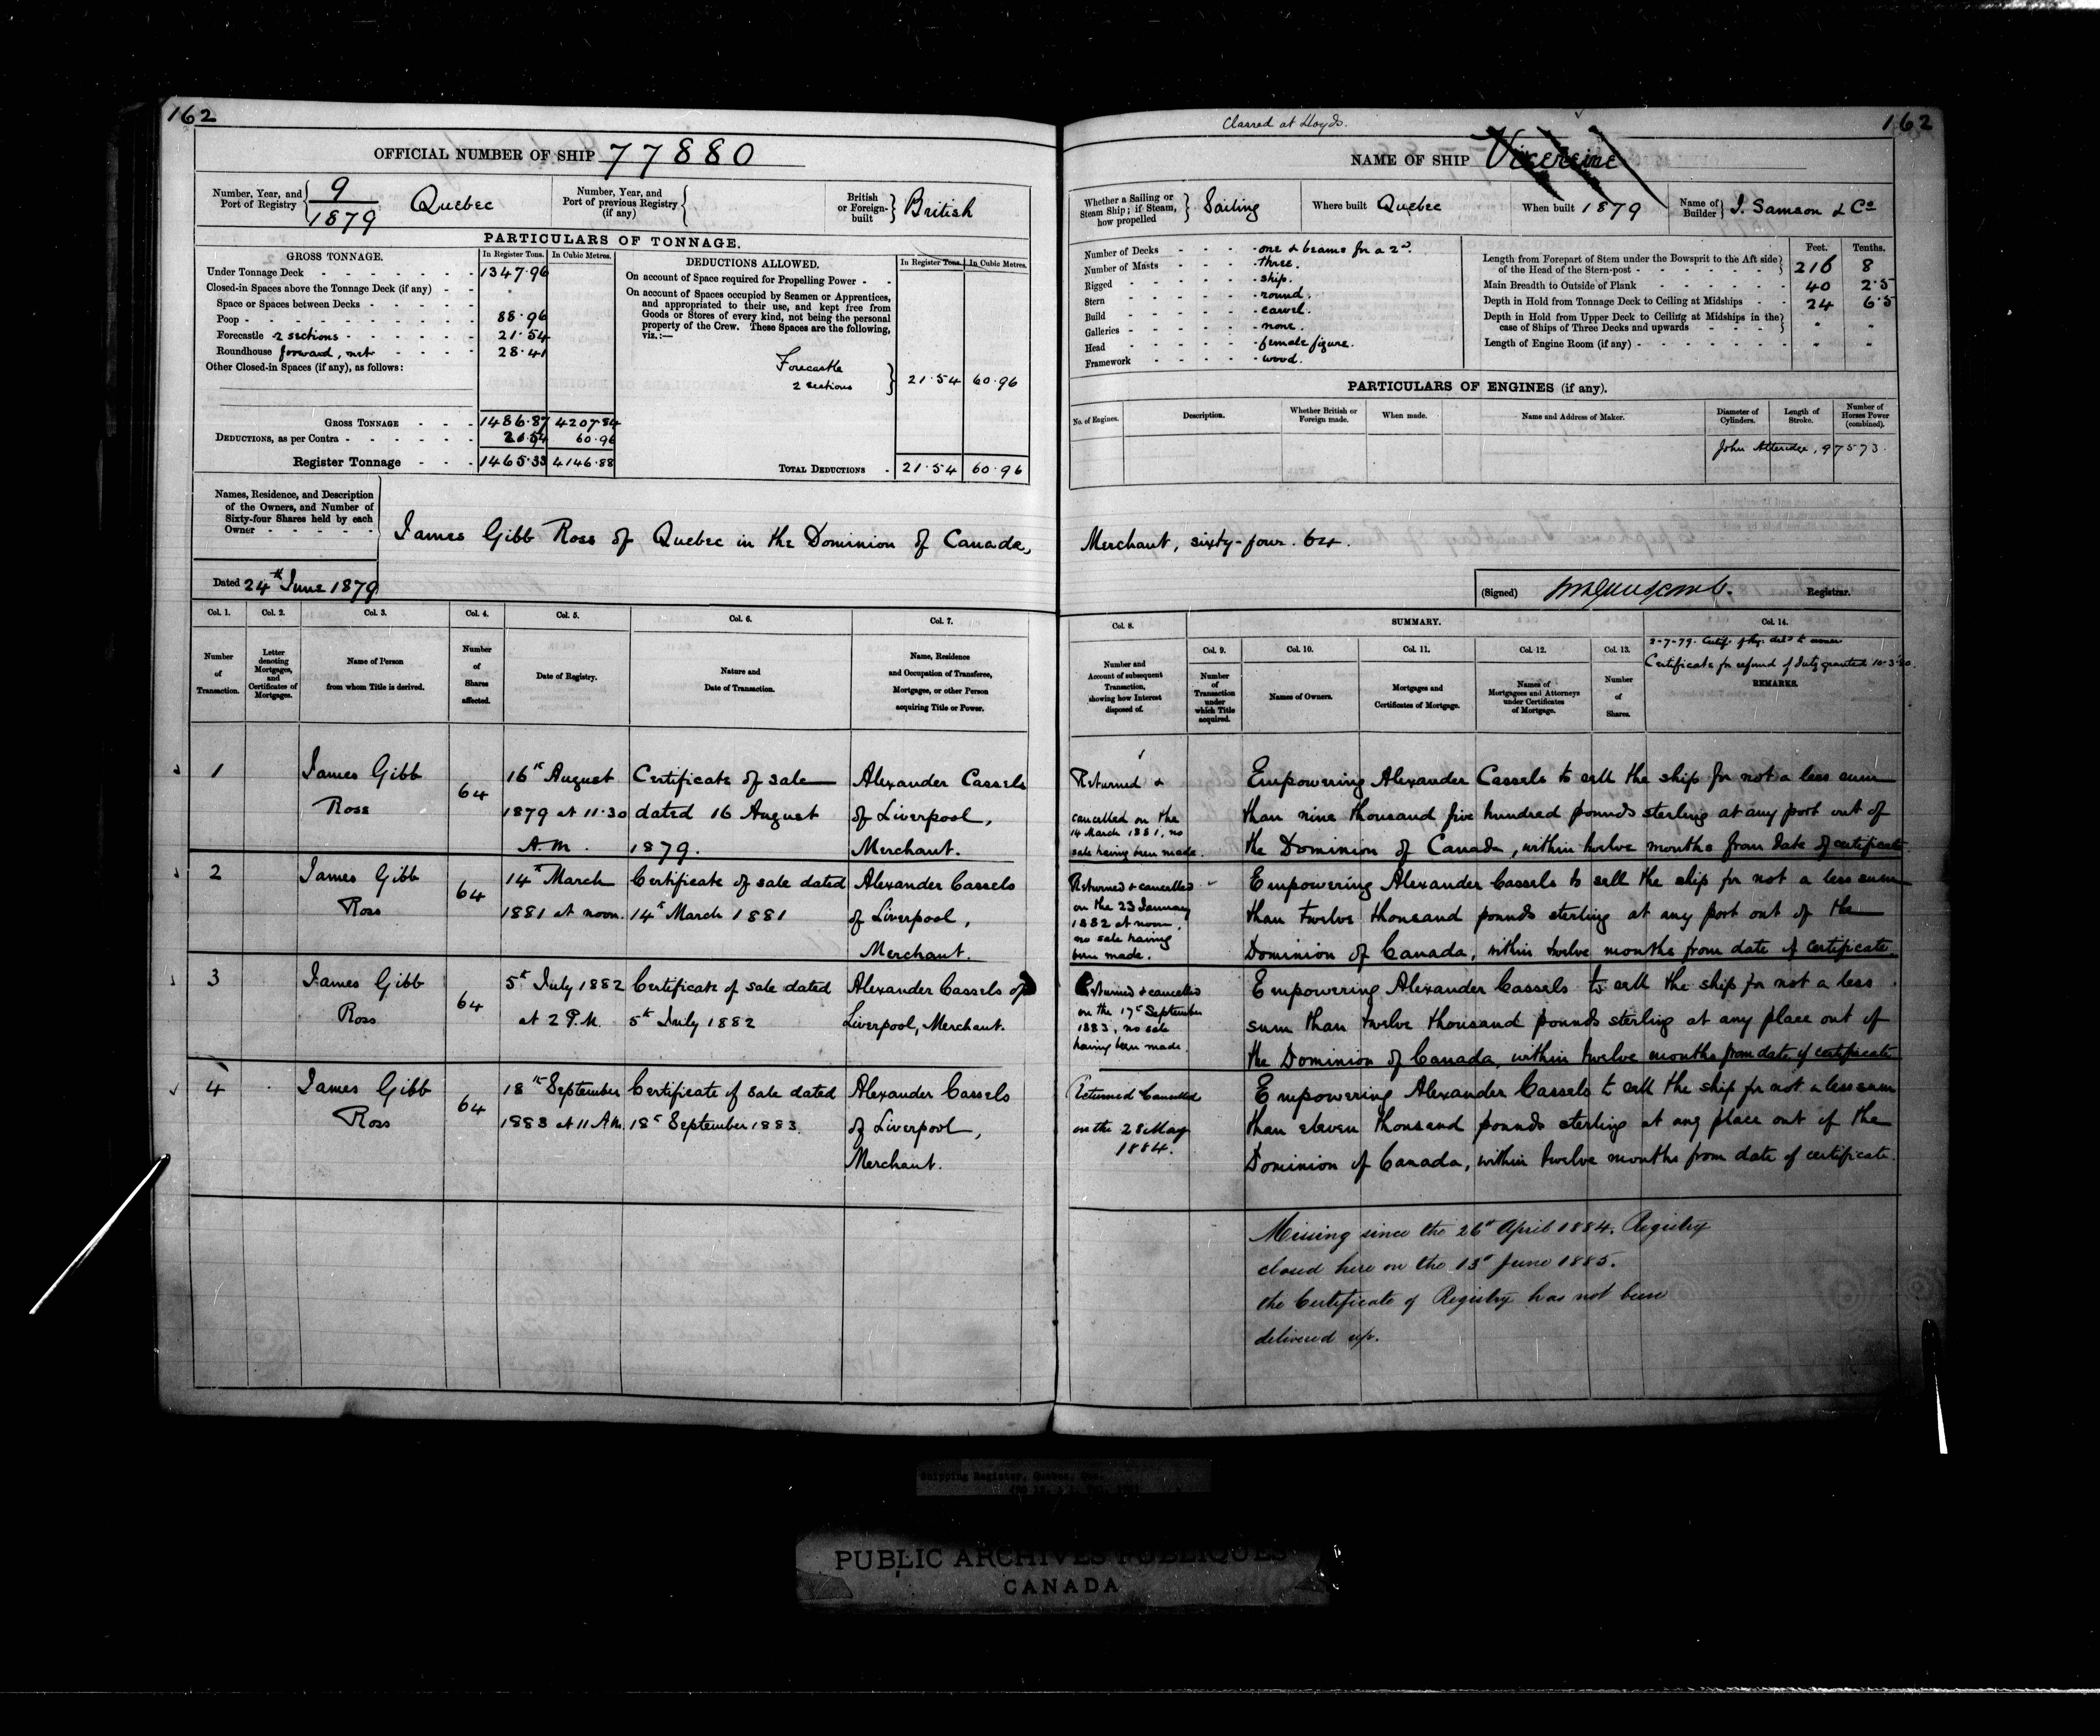 162
OFFICIAL NUMBER OF SHIP 77880
Number, Year, and Port of Registry 9/1879 Quebec
Number, Year, and Port of previous Registry (if any)
British or Foreign-built British
PARTICULARS OF TONNAGE.
GROSS TONNAGE. In Register Tons. In Cubic Metres.
Under Tonnage Deck 1347.96
Closed-in Spaces above the Tonnage Deck (if any)
Space or Spaces between Decks
Poop 88.96
Forecastle 2 sections 21.54
Roundhouse forward, net 28.41
Other Closed-in Spaces (if any), as follows:
GROSS TONNAGE 1486.87 4207.84
DEDUCTIONS, as per Contra 21.54 60.96
Register Tonnage 1465.33 4146.88
DEDUCTIONS ALLOWED. In Register Tons. In Cubic Metres.
On account of Space required for Propelling Power
On account of Spaces occupied by Seamen or Apprentices,
and appropriated to their use, and kept free from
Goods or Stores of every kind, not being the personal
property of the Crew. These Spaces are the following,
viz.:—
Forecastle
2 sections 21.54 60.96
TOTAL DEDUCTIONS 21.54 60.96
Names, Residence, and Description
of the Owners, and Number of
Sixty-four Shares held by each
Owner
James Gibb Ross of Quebec in the Dominion of Canada,
Dated 24th June 1879
Col. 1. Col. 2. Col. 3. Col. 4. Col. 5. Col. 6. Col. 7.
Number of Transaction.
Letter denoting Mortgages, and Certificates of Mortgages.
Name of Person from whom Title is derived.
Number of Shares affected.
Date of Registry.
Nature and Date of Transaction.
Name, Residence and Occupation of Transferee, Mortgagee, or other Person acquiring Title or Power.
1 James Gibb Ross 64
16th August 1879 at 11.30 A.M.
Certificate of sale dated 16 August 1879.
Alexander Cassels of Liverpool, Merchant.
2 James Gibb Ross 64
14th March 1881 at noon.
Certificate of sale dated 14th March 1881
Alexander Cassels of Liverpool, Merchant.
3 James Gibb Ross 64
5th July 1882 at 2 P.M.
Certificate of sale dated 5th July 1882
Alexander Cassels of Liverpool, Merchant.
4 James Gibb Ross 64
18th September 1883 at 11 A.M.
Certificate of sale dated 18th September 1883.
Alexander Cassels of Liverpool, Merchant.
Classed at Lloyds.
162
NAME OF SHIP Vicereine
Whether a Sailing or Steam Ship; if Steam, how propelled Sailing
Where built Quebec
When built 1879
Name of Builder J. Samson & Co
Number of Decks one & beams for a 2nd
Number of Masts three.
Rigged ship.
Stern round.
Build carvel.
Galleries none.
Head female figure.
Framework wood.
Feet. Tenths.
Length from Forepart of Stem under the Bowsprit to the Aft side
of the Head of the Stern-post 216 8
Main Breadth to Outside of Plank 40 2.5
Depth in Hold from Tonnage Deck to Ceiling at Midships 24 6.5
Depth in Hold from Upper Deck to Ceiling at Midships in the
case of Ships of Three Decks and upwards
Length of Engine Room (if any)
PARTICULARS OF ENGINES (if any).
No. of Engines. Description. Whether British or Foreign made. When made. Name and Address of Maker. Diameter of Cylinders. Length of Stroke. Number of Horses Power (combined).
John Atteridge, 97573.
Merchant, sixty-four. 64.
(Signed) Registrar.
Col. 8. SUMMARY. Col. 14.
Col. 9. Col. 10. Col. 11. Col. 12. Col. 13.
2-7-79. Certif. of Rg. deld to owner
Certificate for refund of duty granted 10-3-80.
REMARKS.
Number and Account of subsequent Transaction, showing how Interest disposed of.
Number of Transaction under which Title acquired.
Names of Owners.
Mortgages and Certificates of Mortgage.
Names of Mortgagees and Attorneys under Certificates of Mortgage.
Number of Shares.
Returned & cancelled on the 14 March 1881, no sale having been made.
Empowering Alexander Cassels to sell the ship for not a less sum
than nine thousand five hundred pounds sterling at any port out of
the Dominion of Canada, within twelve months from date of certificate
Returned & cancelled on the 23 January 1882 at noon, no sale having been made.
Empowering Alexander Cassels to sell the ship for not a less sum
than twelve thousand pounds sterling at any port out of the
Dominion of Canada, within twelve months from date of certificate.
Returned & cancelled on the 17th September 1883, no sale having been made.
Empowering Alexander Cassels to sell the ship for not a less
sum than twelve thousand pounds sterling at any place out of
the Dominion of Canada, within twelve months from date of certificate
Returned Cancelled on the 28 May 1884.
Empowering Alexander Cassels to sell the ship for not a less sum
than eleven thousand pounds sterling at any place out of the
Dominion of Canada, within twelve months from date of certificate.
Missing since the 26th April 1884. Registry
closed here on the 13th June 1885.
the Certificate of Registry has not been
delivered up.
Shipping Register, Quebec, Que.
PUBLIC ARCHIVES PUBLIQUES
CANADA